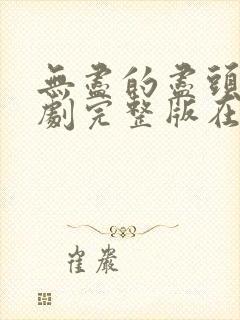 無盡的盡頭
劇完整版在
崔嚴